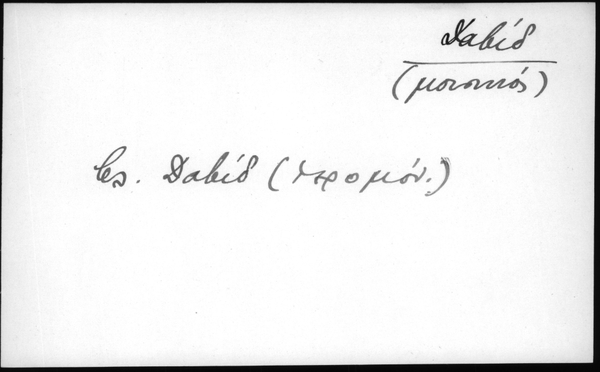 Δαβίδ
(μουσικός)
βλ. Δαβίδ (ιερομόν.)